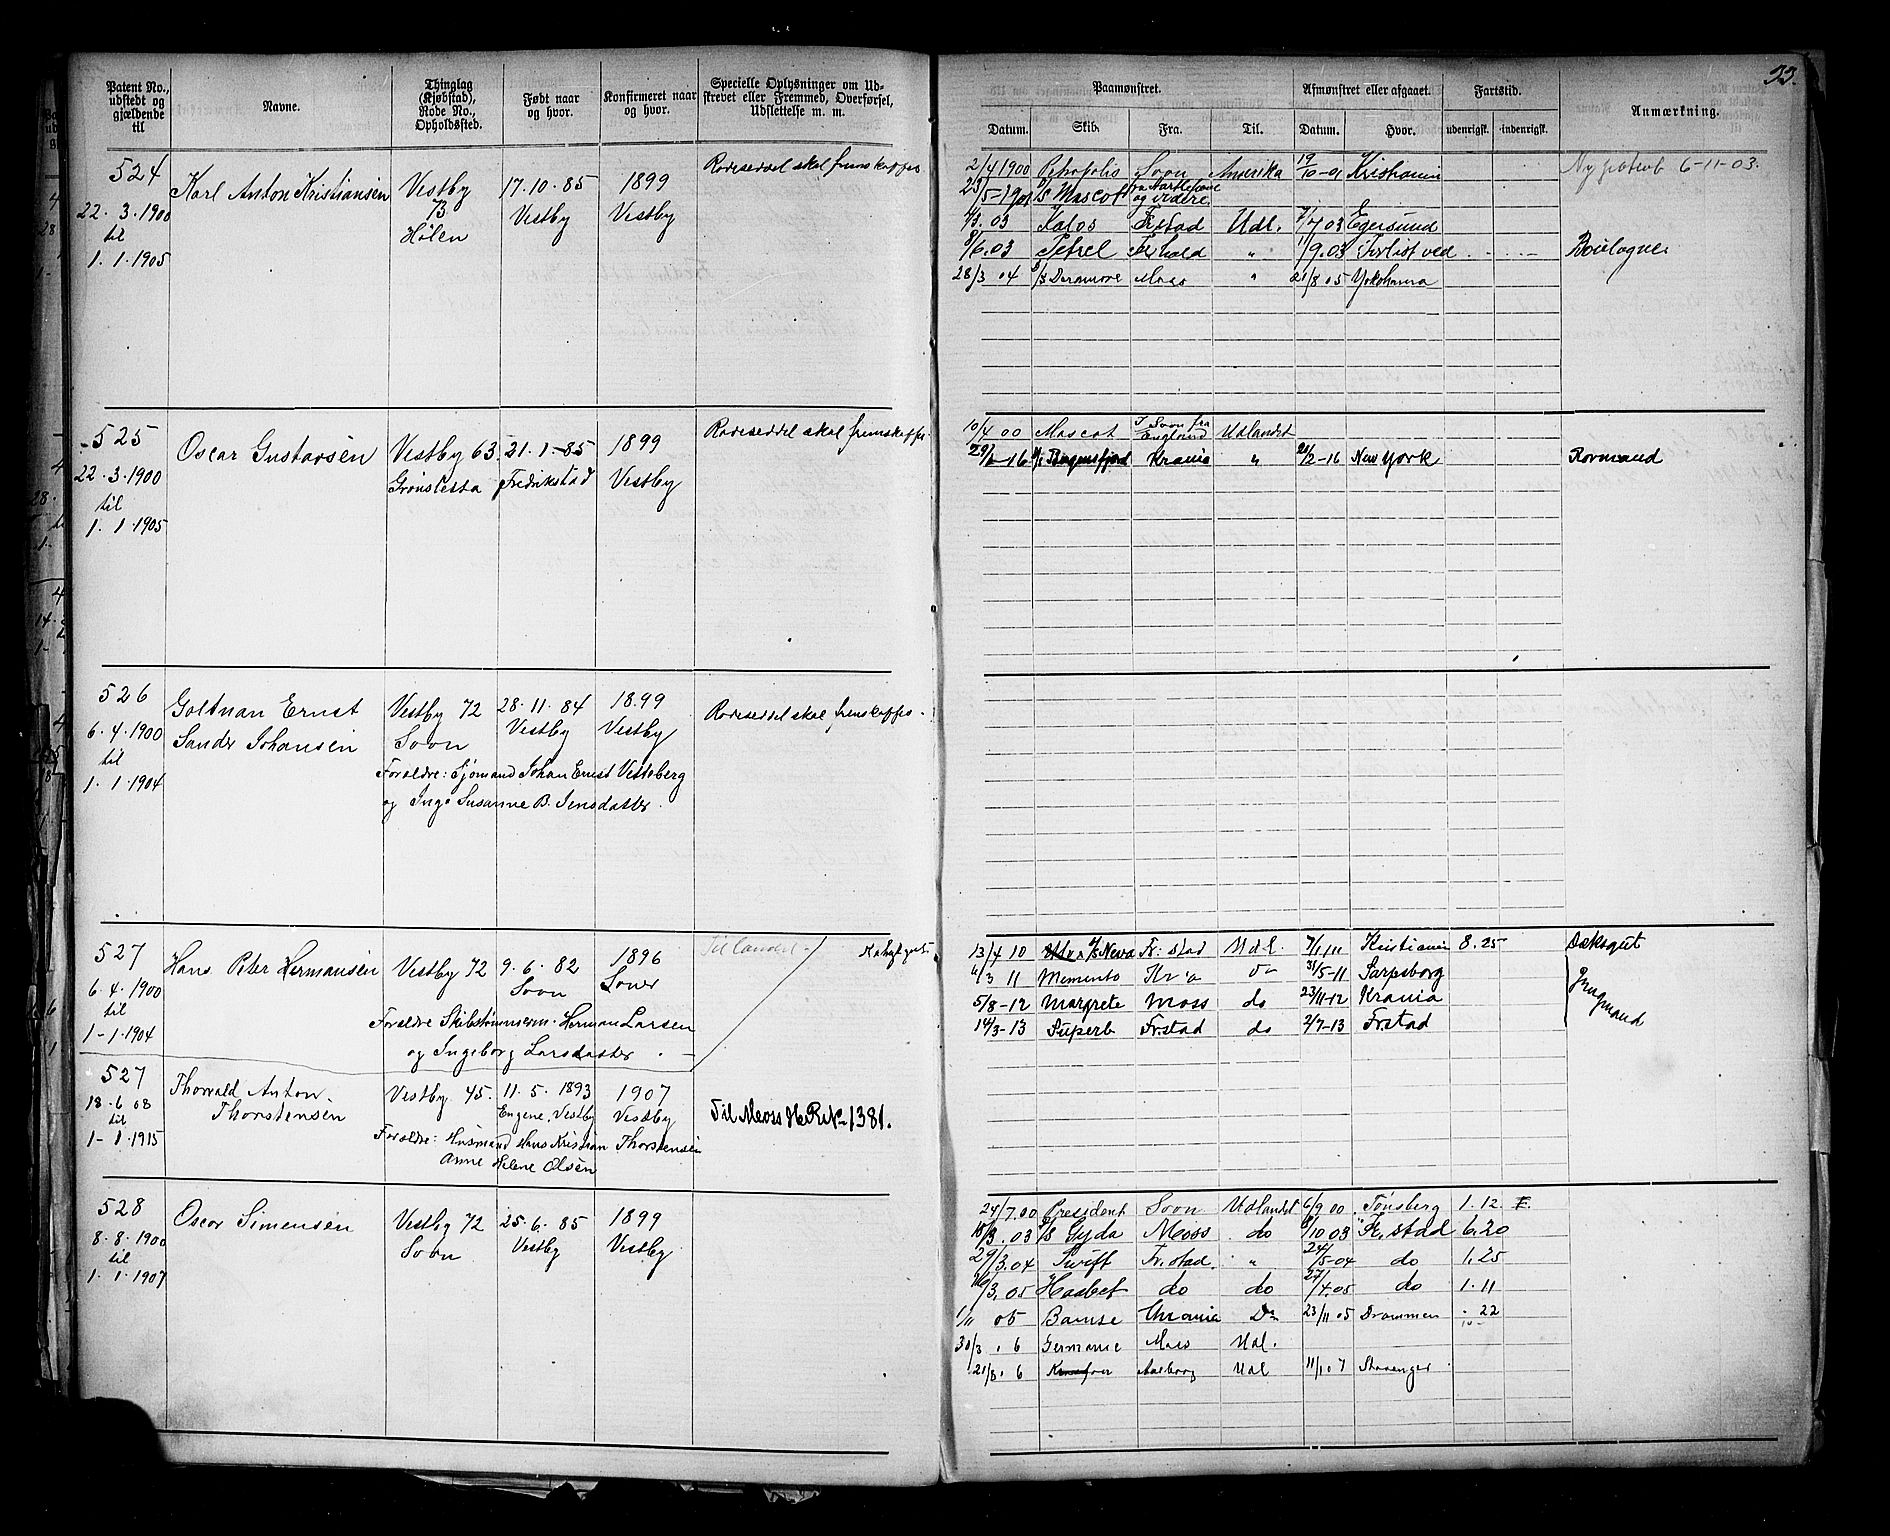 Patent No., udstedt og gjældende til
Navne.
Thinglag (Kjøbstad), Rode No., Opholdssted.
Født naar og hvor.
Konfirmeret naar og hvor.
Specielle Oplysninger om Udskrevet eller Fremmed, Overførsel, Udslettelse m. m.
524
22. 3. 1900
til
1. 1. 1905
Karl Anton Kristiansen
Vestby
73
Hølen
17. 10. 85
Vestby
1899
Vestby
Rodeseddel skal fremskaffes
525
22. 3. 1900
til
1. 1. 1905
Oscar Gustavsen
Vestby 63
Grønsletta
21. 1. 85
Fredrikstad
1899
Vestby
Rodeseddel skal fremskaffes
526
6. 4. 1900
til
1. 1. 1904
Ernst
Sander Johansen
Vestby 72
Soon
28. 11. 84
Vestby
1899
Vestby
Rodeseddel skal fremskaffes.
Forældre: Sjømand Johan Ernst Vestberg
og Inga Susanne B. Jensdatter.
527
6. 4. 1900
til
1 - 1. 1904
Hans Peter Hermansen
Vestby 72
9. 6. 82
Soon
1896
Soner
Til landet.
Forældre Skibstømmerm. Herman Larsen
og Ingeborg Larsdatter.
527
18. 6 08
til
1 - 1. 1915
Thorvald Anton
Thorstensen
Vestby 45.
11. 5. 1893
Engene, Vestby
1907
Vestby
Til Moss H. R. No 1381.
Forældre: Husmand Hans Kristian Thorstensen
Anne Helene Olsen
528
8. 8. 1900
til
1. 1. 1907
Oscar Simensen
Vestby 72
Soon
25. 6. 85
Vestby
1899
Vestby
33.
Paamønstret.
Afmønstret eller afgaaet.
Fartstid.
Anmærkning.
Datum. Skib. Fra. Til. Datum. Hvor. udenrigsk. indenrigsk.
2/4 1900 Petropolis Soon Amerika 19/10-01 Kristiania Ny patent 6-11-03.
23/5-1901 S/S Mascot fra Hartlepool og videre
03 Kalos Fr.stad Udl. 7/7 03 Egersund
8/6. 03 Petrel Fr.hald " 1/9. 03 Forlist ved Boulogne
28/3 04 S/S Deramore Moss " 21/8 05 Yokohama
10/4 00 Mascot I Soon fra England Udlandet
- 16 Bergensfjord Krania " /2-16 New York Rormand
13/4 10 S/S Neva Fr.stad Udl. 7/1 11 Kristiania 8. 25 Dæksgut
6/3 11 Memento Kr a do 31/5-11 Sarpsborg Jungmand
5/8-12 Margrete Moss do 23/11-12 Krania
14/3-13 Superb Fr.stad do 2/7-13 Fr.stad
24/7. 00 President Soon Udlandet 6/9 00 Tønsberg 1. 12.
18/3. 03 S/S Gyda Moss do 8/10 03 Fr. stad 6. 20
29/3. 04 Swift Fr. stad. " 24/5-04 do 1. 25
16/3. 05 Haabet do do 27/4. 05 do 1. 11
1/11 05 Bamse Chrania Do 23/11 05 Drammen . 22
30/3. 6 Germanic Moss Udl.
21/8. 6 Aalborg Udl 11/1 07 Stavanger